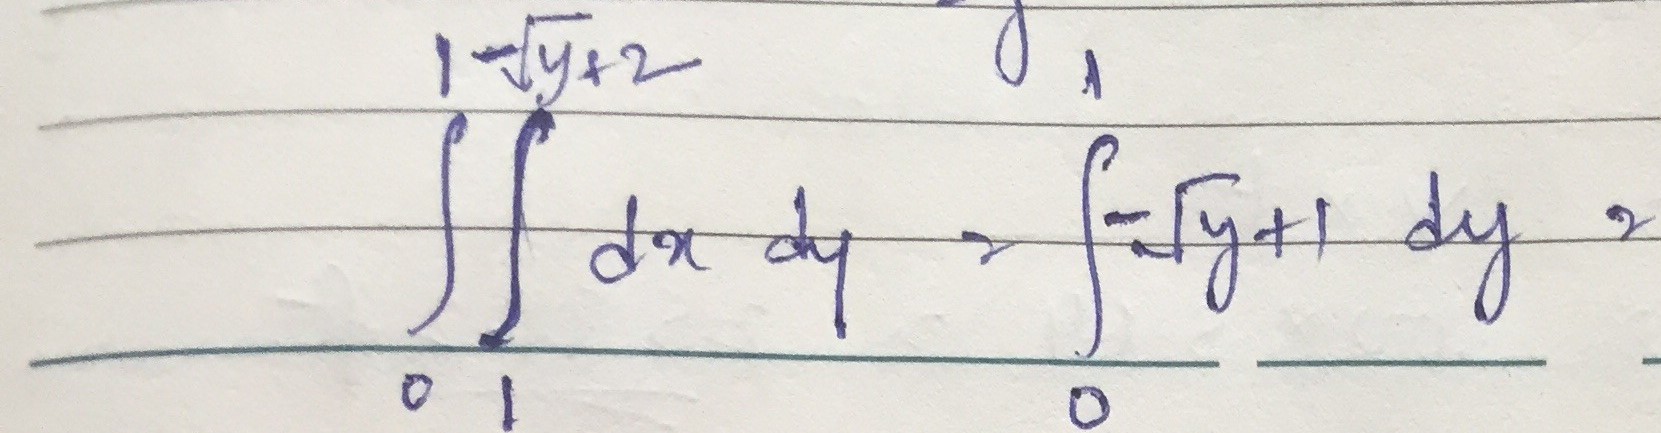 ∫₀¹ ∫₁^(-√y+2) dx dy = ∫₀¹ -√y+1 dy =